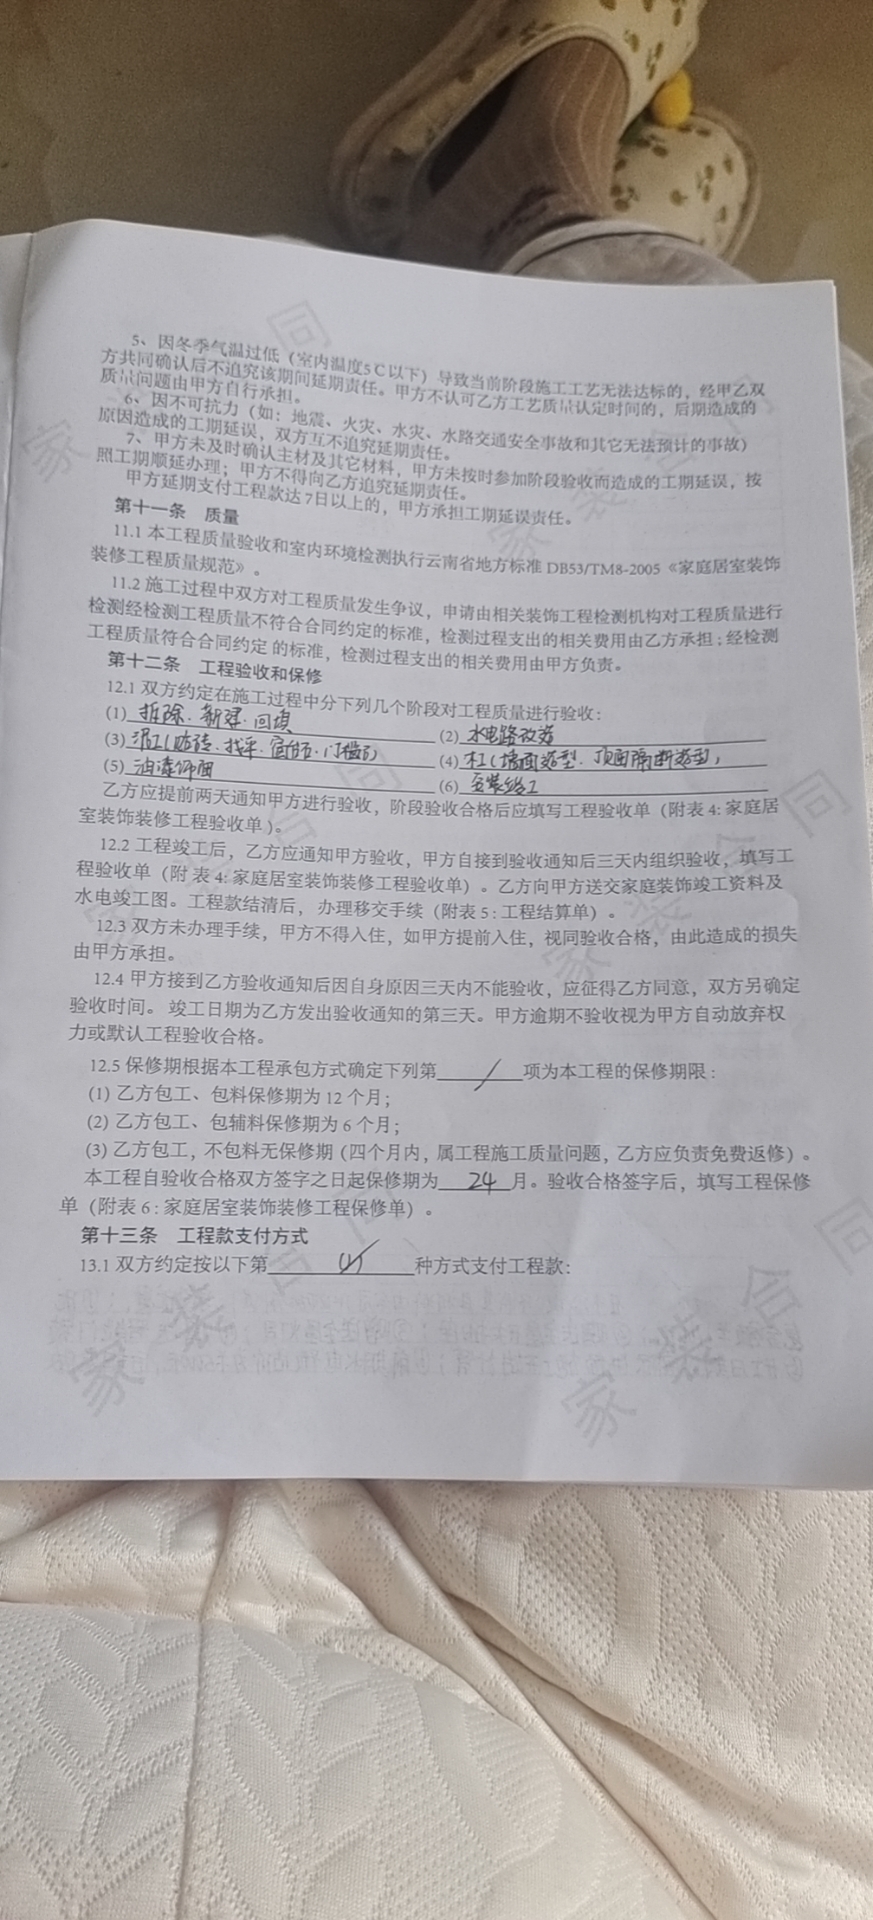 5、因冬季气温过低（室内温度5℃以下）导致当前阶段施工工艺无法达标的，经甲乙双
方共同确认后不追究该期间延期责任。甲方不认可乙方工艺质量认定时间的，后期造成的
质量问题由甲方自行承担。
6、因不可抗力（如：地震、火灾、水灾、水路交通安全事故和其它无法预计的事故）
原因造成的工期延误，双方互不追究延期责任。
7、甲方未及时确认主材及其它材料，甲方未按时参加阶段验收而造成的工期延误，按
照工期顺延办理；甲方不得向乙方追究延期责任。
甲方延期支付工程款达7日以上的，甲方承担工期延误责任。
第十一条 质量
11.1 本工程质量验收和室内环境检测执行云南省地方标准 DB53/TM8-2005《家庭居室装饰
装修工程质量规范》。
11.2 施工过程中双方对工程质量发生争议，申请由相关装饰工程检测机构对工程质量进行
检测经检测工程质量不符合合同约定的标准，检测过程支出的相关费用由乙方承担；经检测
工程质量符合合同约定 的标准，检测过程支出的相关费用由甲方负责。
第十二条 工程验收和保修
12.1 双方约定在施工过程中分下列几个阶段对工程质量进行验收：
(1) 拆除．新建．回填
(2) 水电路改造
(3) 泥工(贴砖．找平．窗台石．门槛石)
(4) 木工(墙面造型．顶面隔断造型)
(5) 油漆饰面
(6) 安装终工
乙方应提前两天通知甲方进行验收，阶段验收合格后应填写工程验收单（附表 4: 家庭居
室装饰装修工程验收单）。
12.2 工程竣工后，乙方应通知甲方验收，甲方自接到验收通知后三天内组织验收，填写工
程验收单（附 表 4: 家庭居室装饰装修工程验收单）。乙方向甲方送交家庭装饰竣工资料及
水电竣工图。工程款结清后，办理移交手续（附表 5：工程结算单）。
12.3 双方未办理手续，甲方不得入住，如甲方提前入住，视同验收合格，由此造成的损失
由甲方承担。
12.4 甲方接到乙方验收通知后因自身原因三天内不能验收，应征得乙方同意，双方另确定
验收时间。 竣工日期为乙方发出验收通知的第三天。甲方逾期不验收视为甲方自动放弃权
力或默认工程验收合格。
12.5 保修期根据本工程承包方式确定下列第 / 项为本工程的保修期限：
(1) 乙方包工、包料保修期为 12 个月；
(2) 乙方包工、包辅料保修期为 6 个月；
(3) 乙方包工，不包料无保修期（四个月内，属工程施工质量问题，乙方应负责免费返修）。
本工程自验收合格双方签字之日起保修期为 24 月。验收合格签字后，填写工程保修
单（附表 6：家庭居室装饰装修工程保修单）。
第十三条 工程款支付方式
13.1 双方约定按以下第 种方式支付工程款：
家装合同